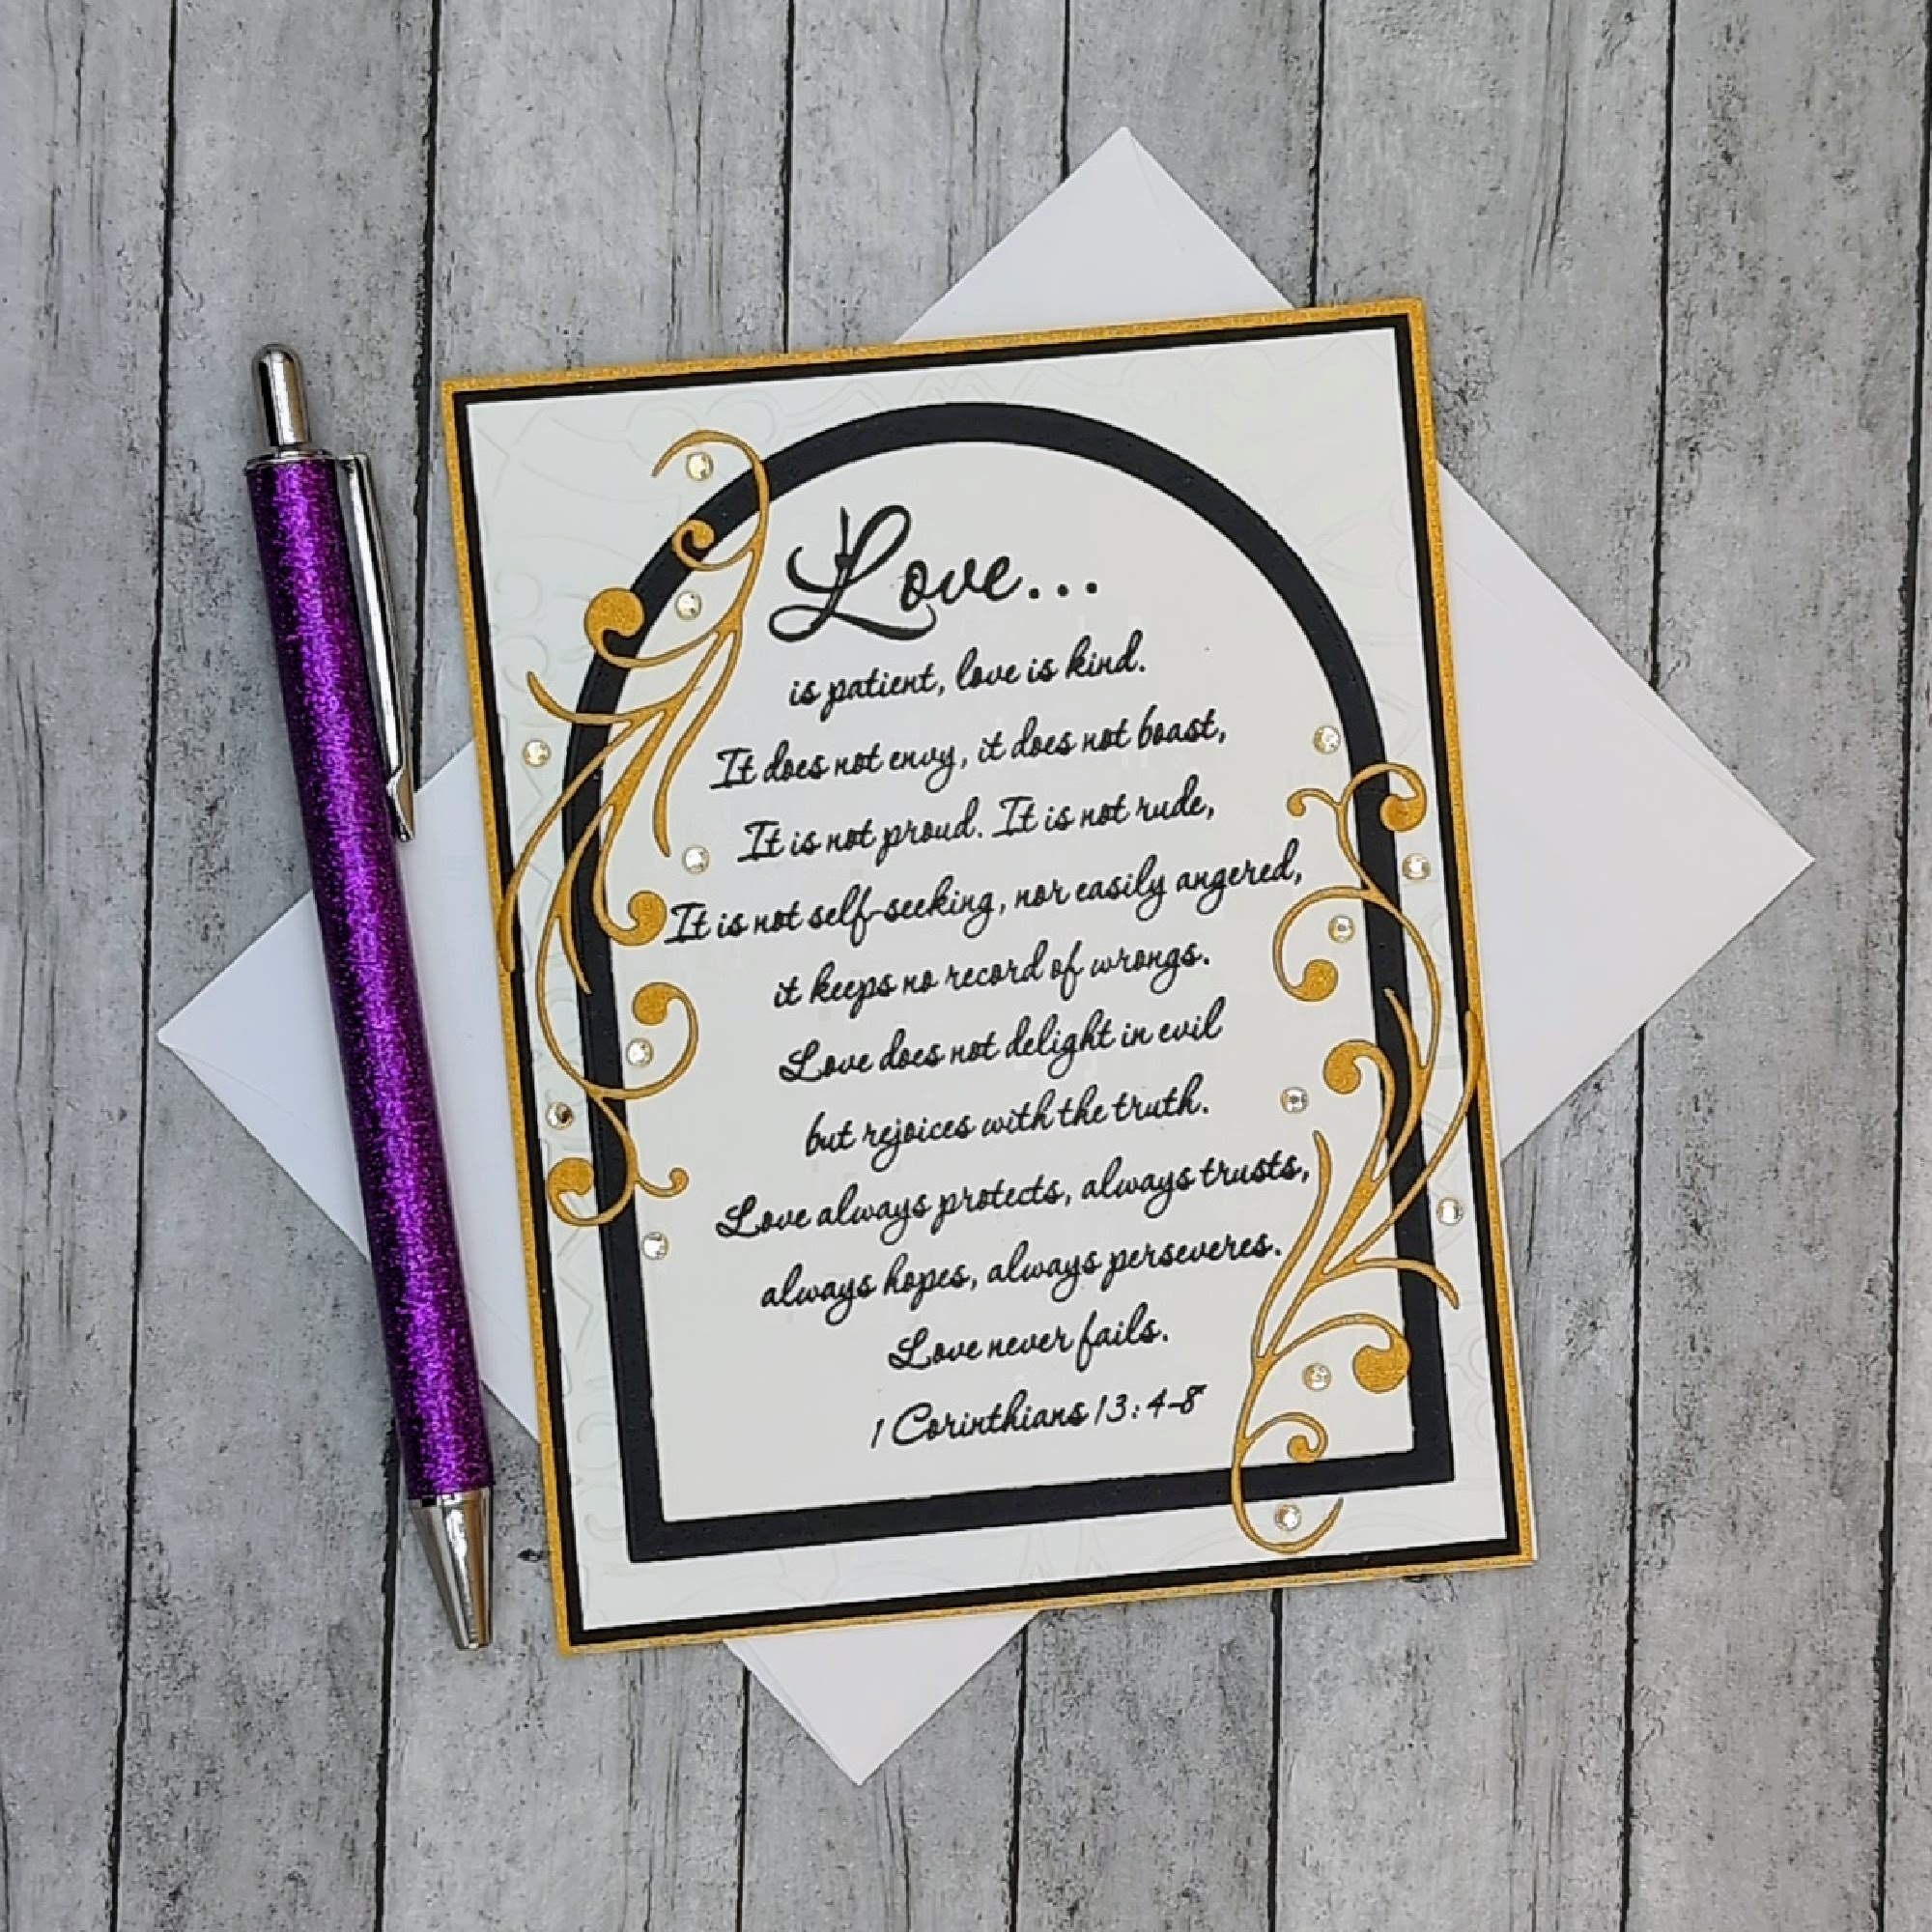 Love...
is patient, love is kind.
It does not envy, it does not boast,
It is not proud. It is not rude,
It is not self-seeking, nor easily angered,
it keeps no record of wrongs.
Love does not delight in evil
but rejoices with the truth.
Love always protects, always trusts,
always hopes, always perseveres.
Love never fails.
1 Corinthians 13:4-8